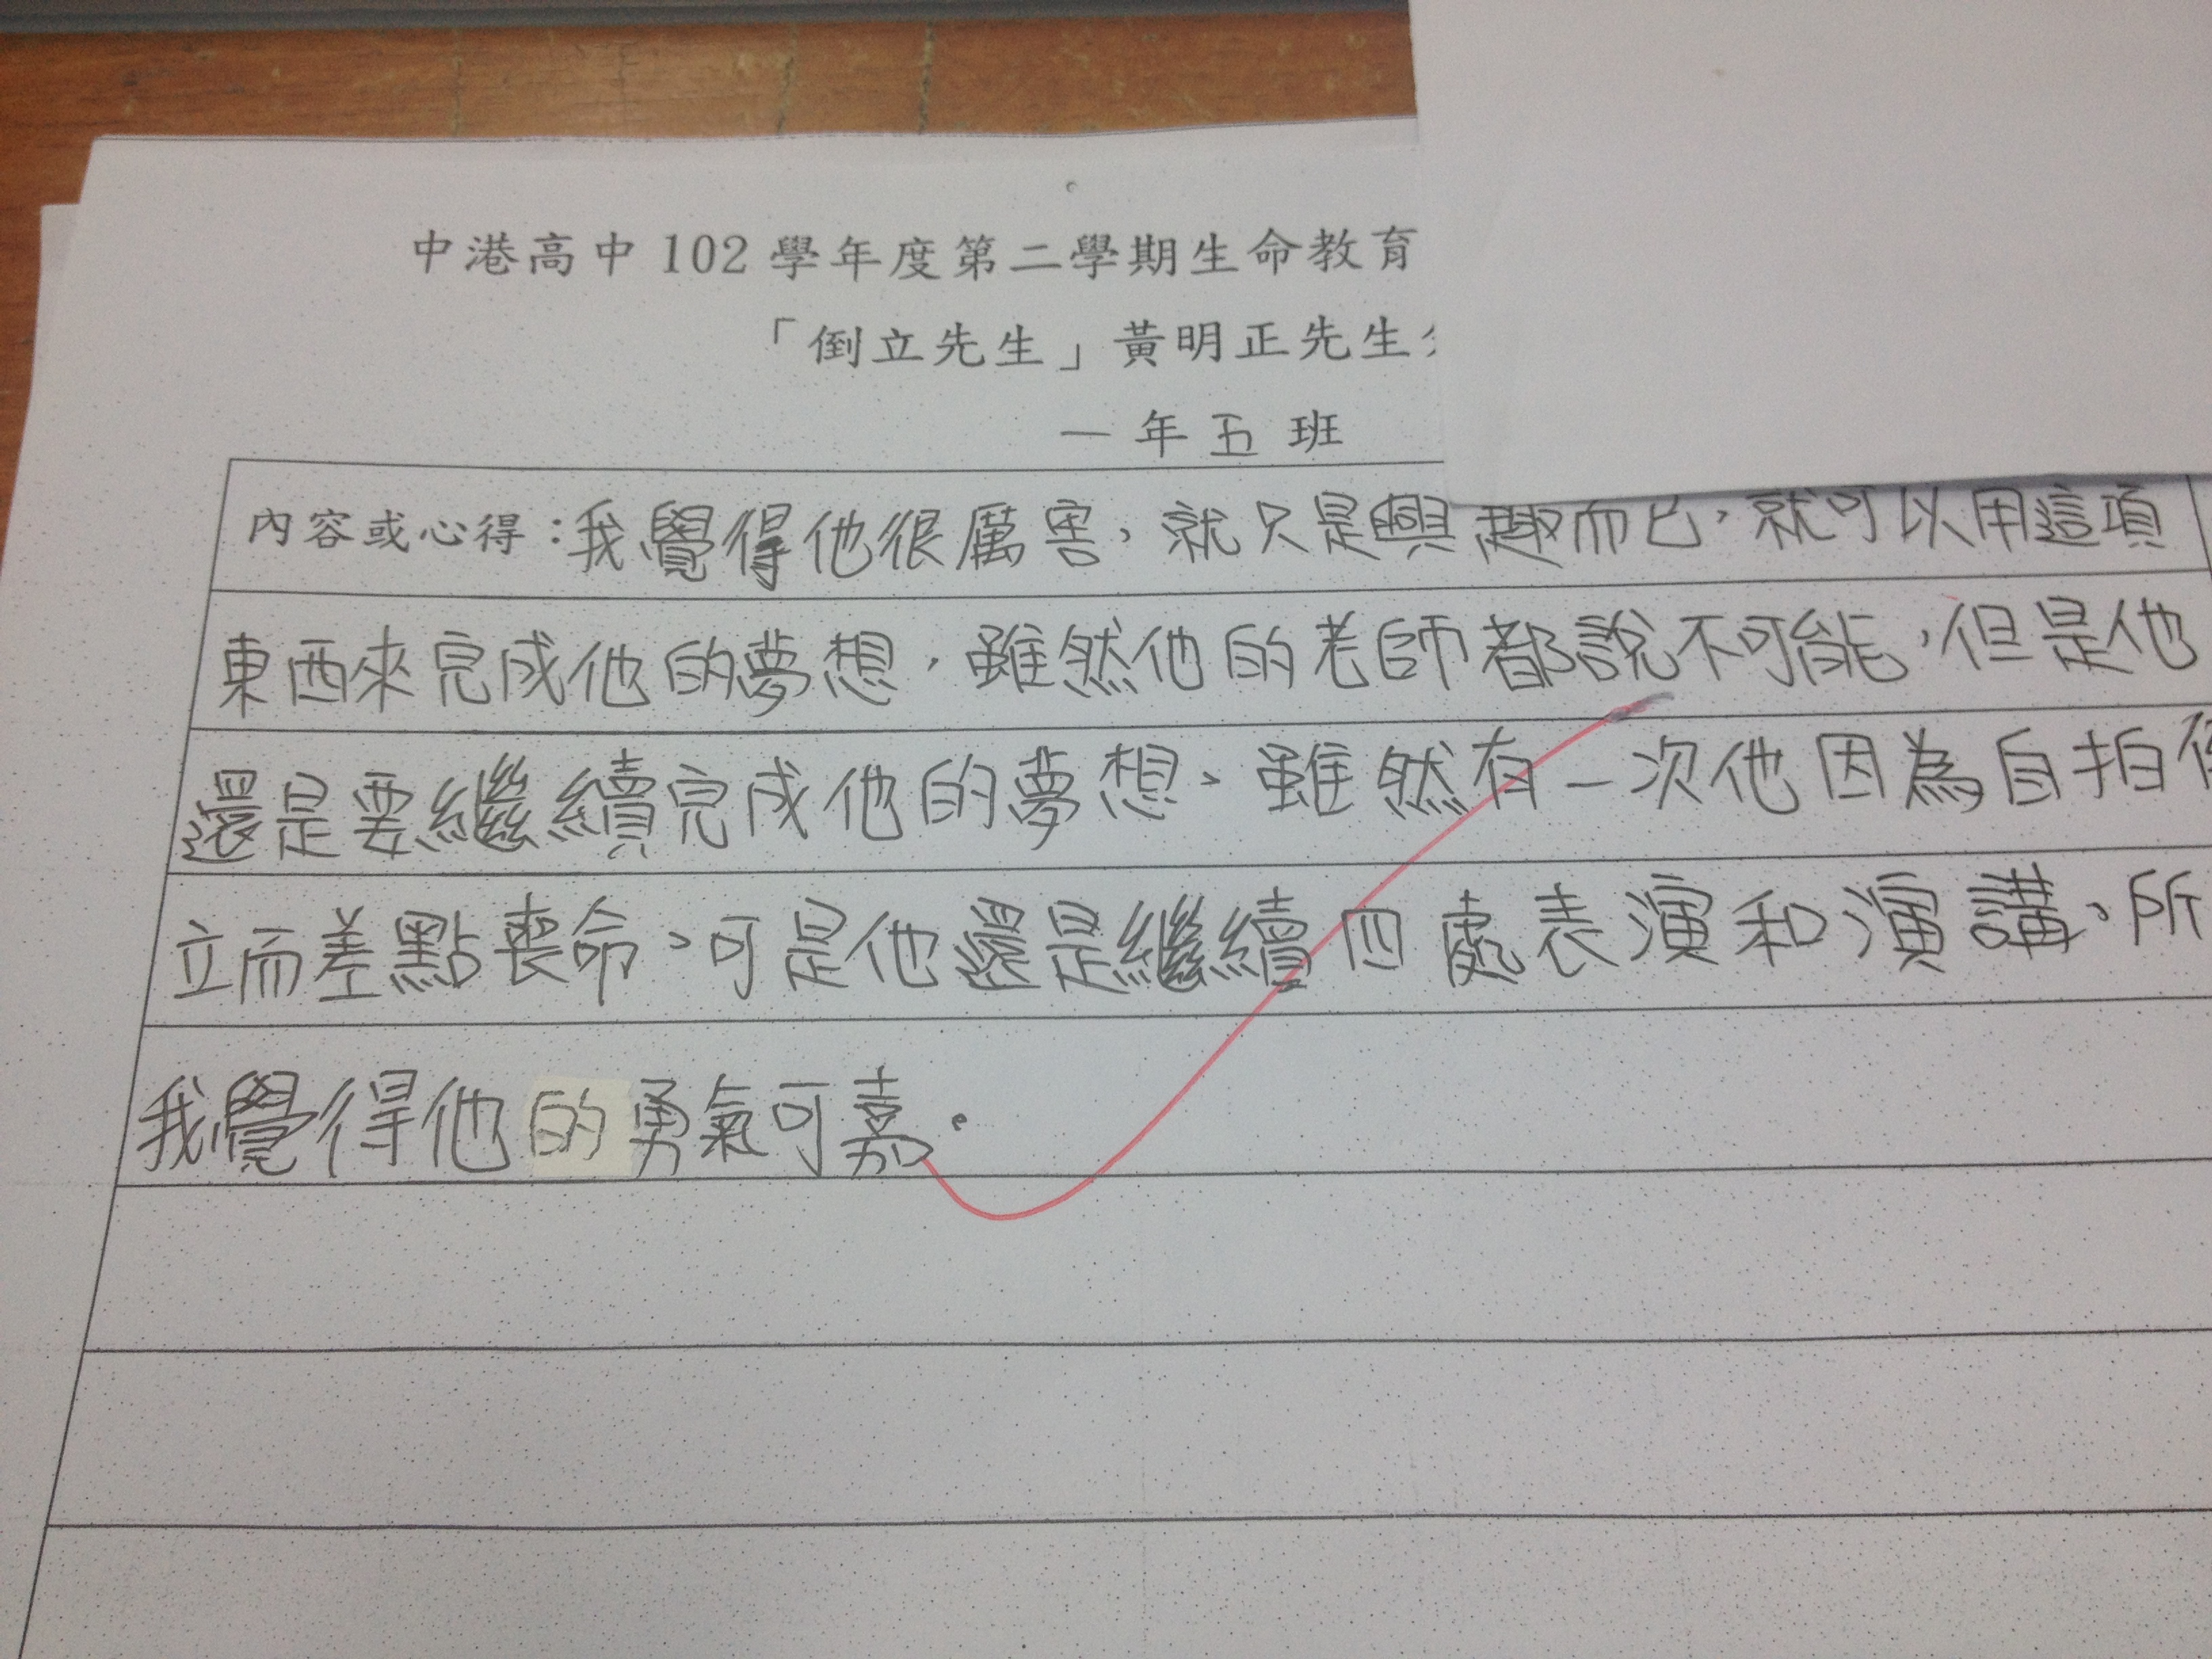 中港高中 102 學年度第二學期生命教育
「倒立先生」黃明正先生
一年五班
內容或心得：我覺得他很厲害，就只是興趣而已，就可以用這項
東西來完成他的夢想，雖然他的老師都說不可能，但是他
還是要繼續完成他的夢想、雖然有一次他因為自拍
立而差點喪命、可是他還是繼續四處表演和演講、所
我覺得他的勇氣可嘉。